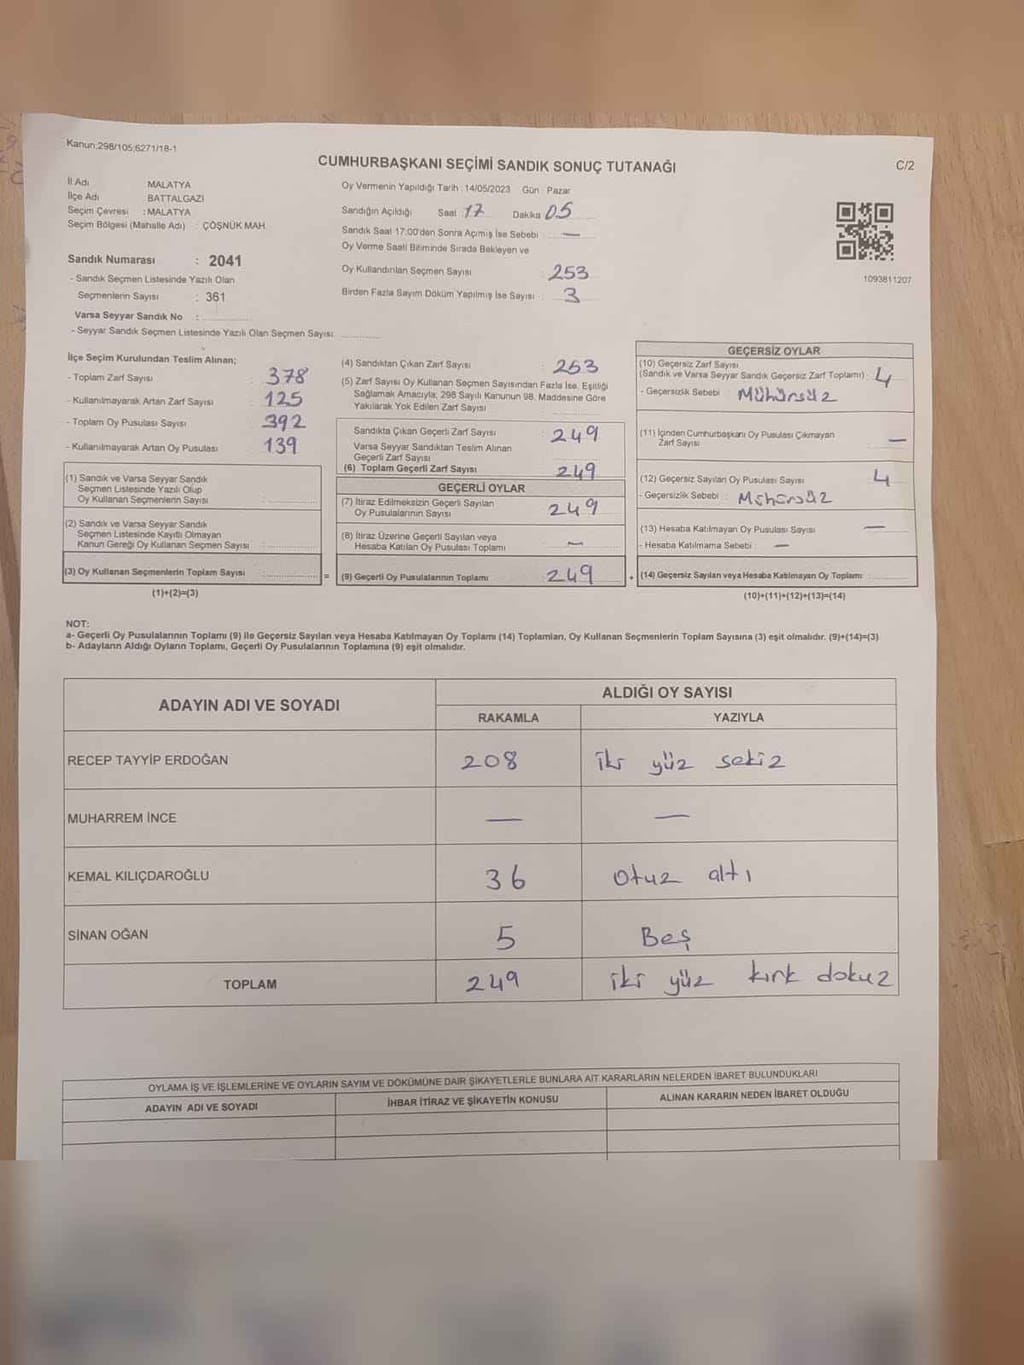 Kanun;298/105,6271/18-1
CUMHURBAŞKANI SEÇİMİ SANDIK SONUÇ TUTANAĞI
C/2
İl Adı MALATYA
İlçe Adı BATTALGAZİ
Seçim Çevresi : MALATYA
Seçim Bölgesi (Mahalle Adı) : ÇÖŞNÜK MAH.
Oy Vermenin Yapıldığı Tarih : 14/05/2023 Gün : Pazar
Sandığın Açıldığı Saat 17 Dakika 05
Sandık Saat 17:00'den Sonra Açılmış İse Sebebi : —
Oy Verme Saati Bitiminde Sırada Bekleyen ve
Oy Kullandırılan Seçmen Sayısı 253
Birden Fazla Sayım Döküm Yapılmış İse Sayısı : 3
1093811207
Sandık Numarası : 2041
- Sandık Seçmen Listesinde Yazılı Olan
Seçmenlerin Sayısı : 361
Varsa Seyyar Sandık No :
- Seyyar Sandık Seçmen Listesinde Yazılı Olan Seçmen Sayısı:
İlçe Seçim Kurulundan Teslim Alınan;
- Toplam Zarf Sayısı : 378
- Kullanılmayarak Artan Zarf Sayısı : 125
- Toplam Oy Pusulası Sayısı : 392
- Kullanılmayarak Artan Oy Pusulası : 139
(1) Sandık ve Varsa Seyyar Sandık
Seçmen Listesinde Yazılı Olup
Oy Kullanan Seçmenlerin Sayısı
(2) Sandık ve Varsa Seyyar Sandık
Seçmen Listesinde Kayıtlı Olmayan
Kanun Gereği Oy Kullanan Seçmen Sayısı
(3) Oy Kullanan Seçmenlerin Toplam Sayısı
(1)+(2)=(3)
=
(4) Sandıktan Çıkan Zarf Sayısı : 253
(5) Zarf Sayısı Oy Kullanan Seçmen Sayısından Fazla İse, Eşitliği
Sağlamak Amacıyla; 298 Sayılı Kanunun 98. Maddesine Göre
Yakılarak Yok Edilen Zarf Sayısı
Sandıkta Çıkan Geçerli Zarf Sayısı : 249
Varsa Seyyar Sandıktan Teslim Alınan
Geçerli Zarf Sayısı
(6) Toplam Geçerli Zarf Sayısı : 249
GEÇERLİ OYLAR
(7) İtiraz Edilmeksizin Geçerli Sayılan
Oy Pusulalarının Sayısı : 249
(8) İtiraz Üzerine Geçerli Sayılan veya
Hesaba Katılan Oy Pusulası Toplamı —
(9) Geçerli Oy Pusulalarının Toplamı 249
+
GEÇERSİZ OYLAR
(10) Geçersiz Zarf Sayısı
(Sandık ve Varsa Seyyar Sandık Geçersiz Zarf Toplamı) : 4
- Geçersizlik Sebebi : Mühürsüz
(11) İçinden Cumhurbaşkanı Oy Pusulası Çıkmayan
Zarf Sayısı —
(12) Geçersiz Sayılan Oy Pusulası Sayısı 4
- Geçersizlik Sebebi : Mühürsüz
(13) Hesaba Katılmayan Oy Pusulası Sayısı —
- Hesaba Katılmama Sebebi : —
(14) Geçersiz Sayılan veya Hesaba Katılmayan Oy Toplamı
(10)+(11)+(12)+(13)=(14)
NOT:
a- Geçerli Oy Pusulalarının Toplamı (9) ile Geçersiz Sayılan veya Hesaba Katılmayan Oy Toplamı (14) Toplamları, Oy Kullanan Seçmenlerin Toplam Sayısına (3) eşit olmalıdır. (9)+(14)=(3)
b- Adayların Aldığı Oyların Toplamı, Geçerli Oy Pusulalarının Toplamına (9) eşit olmalıdır.
ADAYIN ADI VE SOYADI
ALDIĞI OY SAYISI
RAKAMLA YAZIYLA
RECEP TAYYİP ERDOĞAN 208 iki yüz sekiz
MUHARREM İNCE — —
KEMAL KILIÇDAROĞLU 36 otuz altı
SİNAN OĞAN 5 Beş
TOPLAM 249 iki yüz kırk dokuz
OYLAMA İŞ VE İŞLEMLERİNE VE OYLARIN SAYIM VE DÖKÜMÜNE DAİR ŞİKAYETLERLE BUNLARA AİT KARARLARIN NELERDEN İBARET BULUNDUKLARI
ADAYIN ADI VE SOYADI İHBAR İTİRAZ VE ŞİKAYETİN KONUSU ALINAN KARARIN NEDEN İBARET OLDUĞU